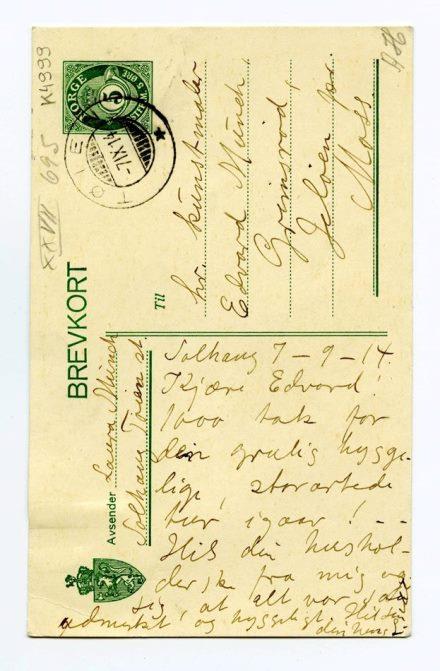 K4999
XXVII 695
NORGE
5 ØRE
TØIE
-7 IX 14
BREVKORT
Til
hr. kunstmaler
Edvard Munch,
Grimsrød,
Jeløen pr.
Moss.
Avsender Laura Munch
Solhaug
Solhaug 7-9-14.
Kjære Edvard!
1000 tak for
den grulig hygge-
lige, storartede
tur igaar! --
Hils din hushol-
derske fra mig og
sig, at alt var saa
udmerket og hyggeligt. Hils